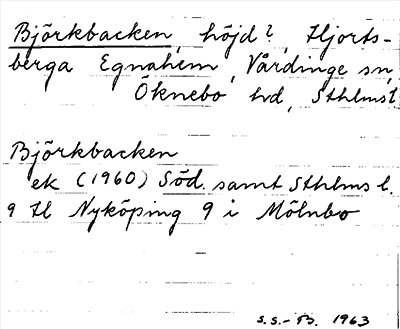 Björkbacken, höjd?, Hjorts-
berga Egnahem, Vårdinge sn,
Öknebo hd, Sthlms l
Björkbacken
ek (1960) Söd. samt Sthlms l.
9 H Nyköping 9 i Mölnbo
S.S.-B. 1963